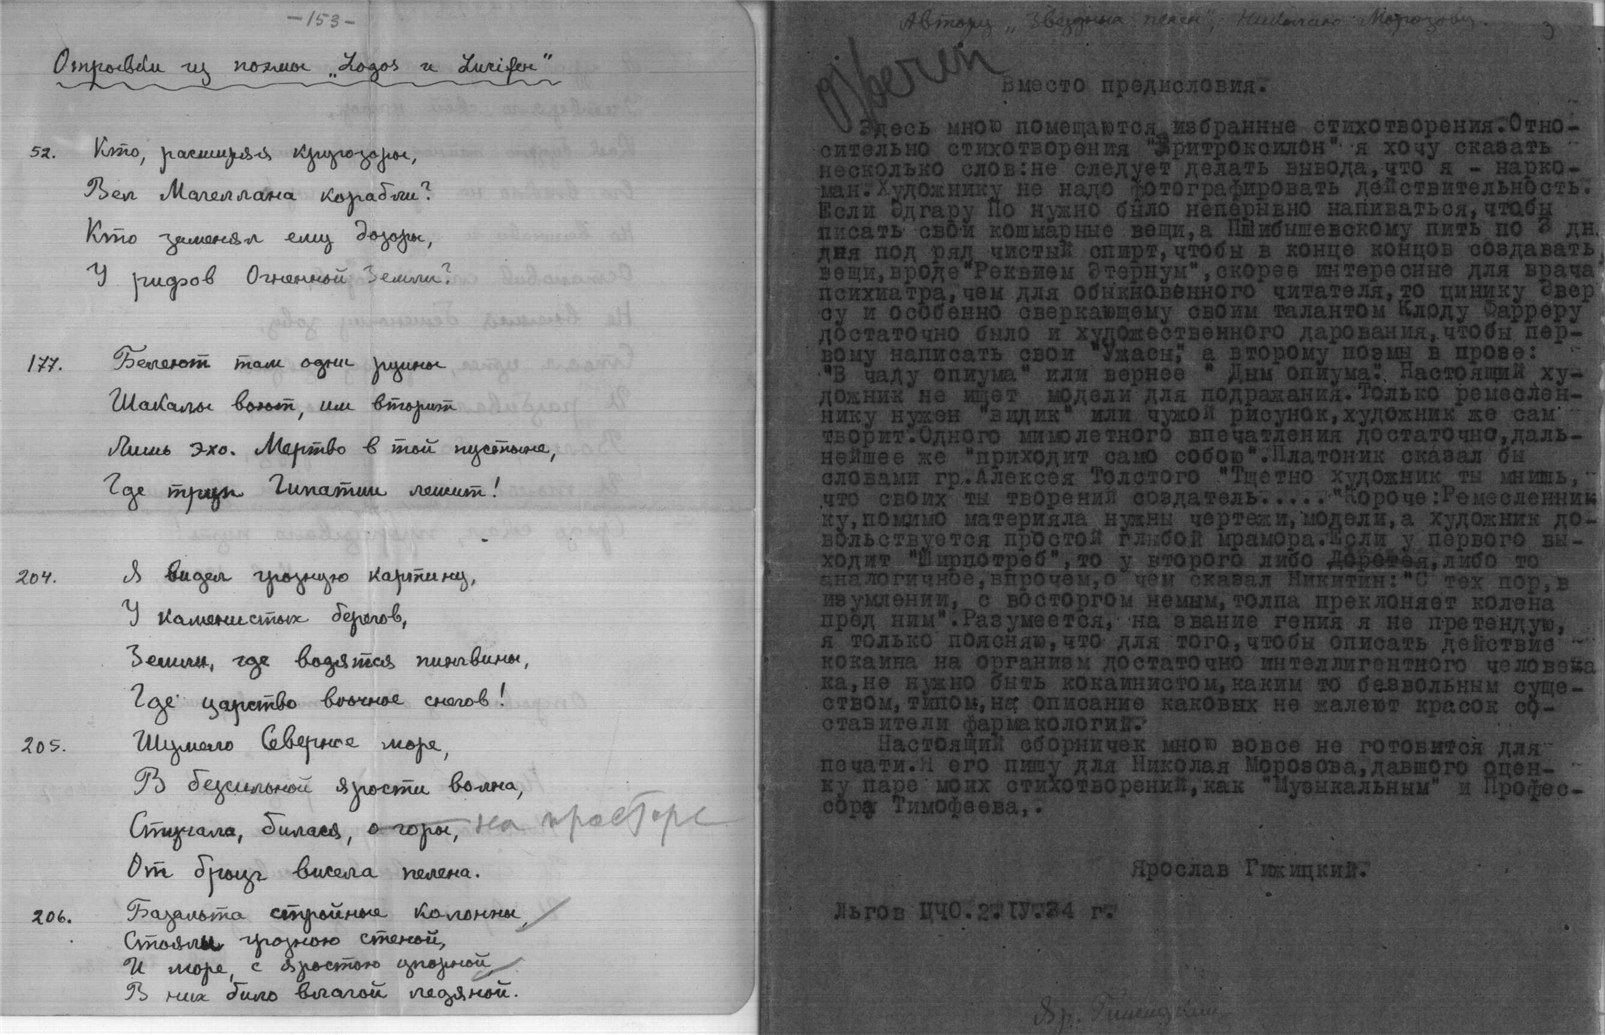 -153-
Отрывки из поэмы „Logos и Lucifer“
52. Кто, расширяя кругозоры,
Вел Магеллана корабли?
Кто заменял ему дозоры,
У рифов Огненной Земли?
177. Белеют там одни руины
Шакалы воют, им вторит
Лишь эхо. Мертво в той пустыне,
Где труп Гипатии лежит!
204. Я видел грозную картину,
У каменистых берегов,
Земли, где водятся пингвины,
Где царство вечное снегов!
205. Шумело Северное море,
В безсильной ярости волна,
Стучала, билася, о горы, на просторе
От брызг висела пелена.
206. Базальта стройные колонны,
Стояли грозною стеной,
И море, с яростью упорной
В них било влагой ледяной.
Автору „Звездных песен“, Николаю Морозову.
3
Вместо предисловия.
Здесь мною помещаются избранные стихотворения.Отно-
сительно стихотворения "Эритроксилон" я хочу сказать
несколько слов:не следует делать вывода,что я - нарко-
ман.Художнику не надо фотографировать действительность.
Если Эдгару По нужно было неперывно напиваться,чтобы
писать свои кошмарные вещи,а Пшибышевскому пить по 3 дн.
дня под ряд чистый спирт,чтобы в конце концов создавать
вещи,вроде"Реквием Этернум",скорее интересные для врача
психиатра,чем для обыкновенного читателя,то цинику Эвер
су и особенно сверкающему своим талантом Клоду Фарреру
достаточно было и художественного дарования,чтобы пер-
вому написать свои "Ужасы," а второму поэмы в прозе:
"В чаду опиума" или вернее " Дым опиума". Настоящий ху-
дожник не ищет модели для подражания.Только ремеслен-
нику нужен "видик" или чужой рисунок,художник же сам
творит.Одного мимолетного впечатления достаточно,даль-
нейшее же "приходит само собою".Платоник сказал бы
словами гр.Алексея Толстого "Тщетно художник ты мнишь,
что своих ты творений создатель....."Короче:Ремесленник
ку,помимо материяла нужны чертежи,модели,а художник до-
вольствуется простой глыбой мрамора.Если у первого вы-
ходит "Ширпотреб",то у второго либо либо то
аналогичное,впрочем,о чем сказал Никитин:"С тех пор,в
изумлении, с восторгом немым,толпа преклоняет колена
пред ним".Разумеется, на звание гения я не претендую,
я только поясняю,что для того,чтобы описать действие
кокаина на организм достаточно интеллигентного человека
ка,не нужно быть кокаинистом,каким то безвольным суще-
ством,типом,на описание каковых не жалеют красок со-
ставители фармакологий.
Настоящий сборничек мною вовсе не готовится для
печати.Я его пишу для Николая Морозова,давшого оцен-
ку паре моих стихотворений,как "Музыкальным" и Профес-
сора Тимофеева,.
Ярослав Гижицкий.
Льгов ЦЧО.2.IУ.34 г.
Яр. Гижицкий